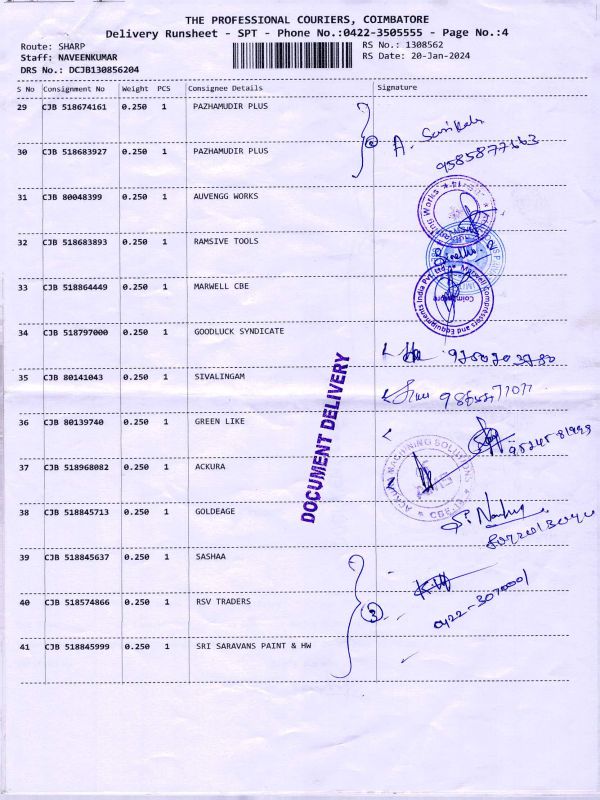 THE PROFESSIONAL COURIERS, COIMBATORE
Delivery Runsheet - SPT - Phone No.:0422-3505555 - Page No.:4
Route: SHARP
RS No.: 1308562
Staff: NAVEENKUMAR
RS Date: 20-Jan-2024
DRS No.: DCJB130856204
S No Consignment No Weight PCS Consignee Details Signature
29 CJB 518674161 0.250 1 PAZHAMUDIR PLUS
30 CJB 518683927 0.250 1 PAZHAMUDIR PLUS
31 CJB 80048399 0.250 1 AUVENGG WORKS
32 CJB 518683893 0.250 1 RAMSIVE TOOLS
33 CJB 518864449 0.250 1 MARWELL CBE
Marwell Compressors and Equipments India Pvt Ltd
Coimbatore
34 CJB 518797000 0.250 1 GOODLUCK SYNDICATE
35 CJB 80141043 0.250 1 SIVALINGAM
36 CJB 80139740 0.250 1 GREEN LIKE
37 CJB 518968082 0.250 1 ACKURA
MACHINING SOLUTIONS
38 CJB 518845713 0.250 1 GOLDEAGE
DOCUMENT DELIVERY
39 CJB 518845637 0.250 1 SASHAA
40 CJB 518574866 0.250 1 RSV TRADERS
3
41 CJB 518845999 0.250 1 SRI SARAVANS PAINT & HW